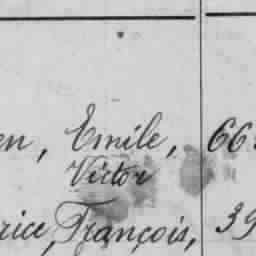 en, Emile, 66
Victor
rice, François, 39